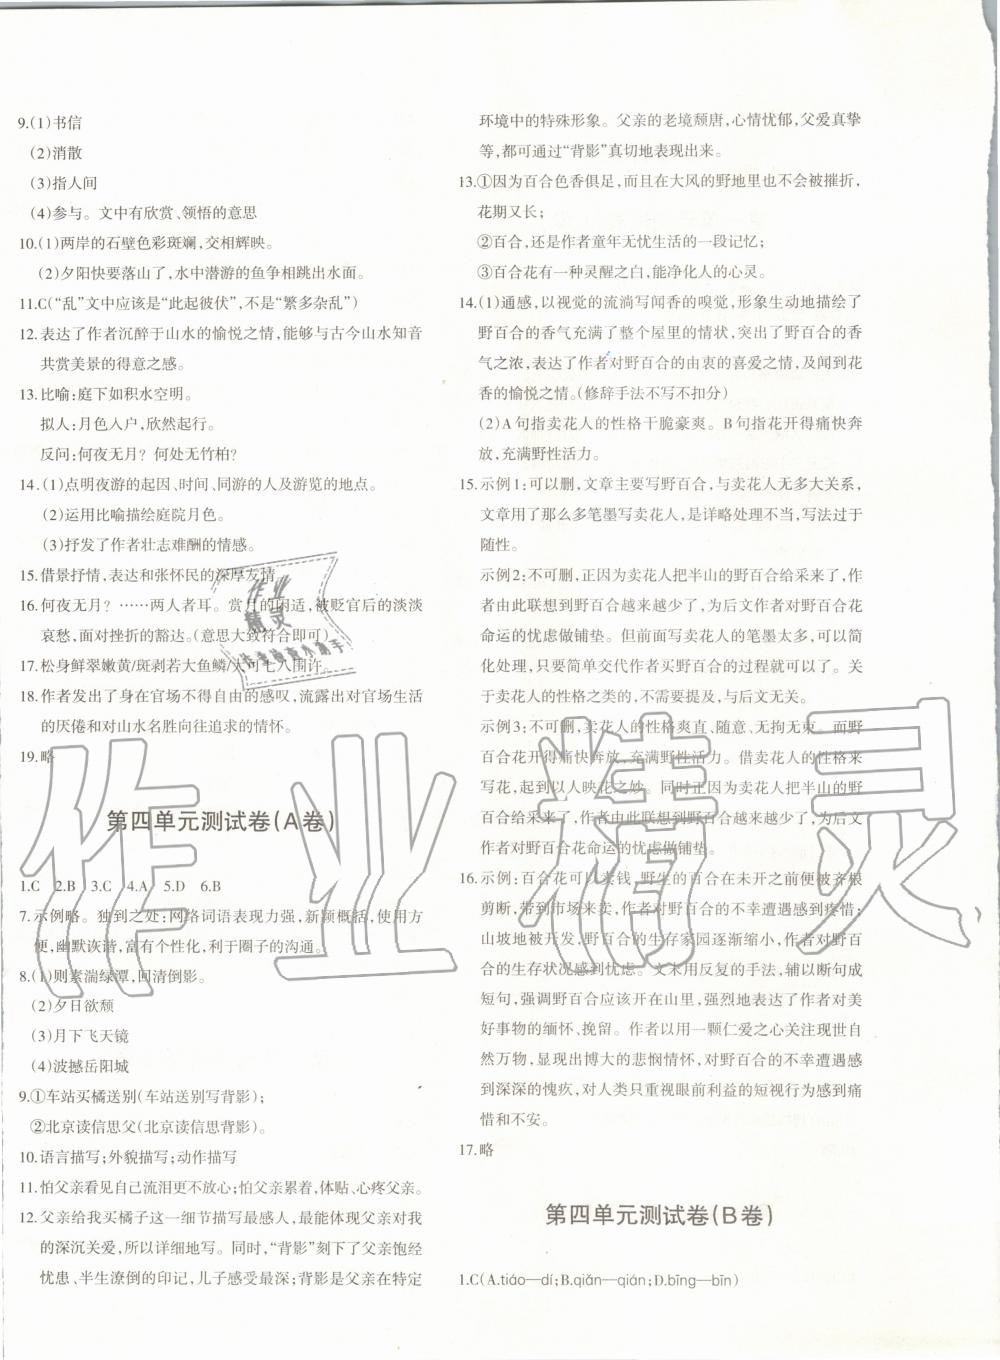 9.(1)书信
(2)消散
(3)指人间
(4)参与。文中有欣赏、领悟的意思
10.(1)两岸的石壁色彩斑斓,交相辉映。
(2)夕阳快要落山了,水中潜游的鱼争相跳出水面。
11.C(“乱”文中应该是“此起彼伏”,不是“繁多杂乱”)
12.表达了作者沉醉于山水的愉悦之情,能够与古今山水知音
共赏美景的得意之感。
13.比喻:庭下如积水空明。
拟人:月色入户,欣然起行。
反问:何夜无月?何处无竹柏?
14.(1)点明夜游的起因、时间、同游的人及游览的地点。
(2)运用比喻描绘庭院月色。
(3)抒发了作者壮志难酬的情感。
15.借景抒情,表达和张怀民的深厚友情
16.何夜无月?……两人者耳。赏月的闲适,被贬官后的淡淡
哀愁,面对挫折的豁达。(意思大致符合即可)
17.松身鲜翠嫩黄/斑剥若大鱼鳞/大可七八围许。
18.作者发出了身在官场不得自由的感叹,流露出对官场生活
的厌倦和对山水名胜向往追求的情怀。
19.略
第四单元测试卷(A卷)
1.C 2.B 3.C 4.A 5.D 6.B
7.示例略。独到之处:网络词语表现力强,新颖概括,使用方
便,幽默诙谐,富有个性化,利于圈子的沟通。
8.(1)则素湍绿潭,回清倒影。
(2)夕日欲颓
(3)月下飞天镜
(4)波撼岳阳城
9.①车站买橘送别(车站送别写背影);
②北京读信思父(北京读信思背影)。
10.语言描写;外貌描写;动作描写
11.怕父亲看见自己流泪更不放心;怕父亲累着,体贴、心疼父亲。
12.父亲给我买橘子这一细节描写最感人,最能体现父亲对我
的深沉关爱,所以详细地写。同时,“背影”刻下了父亲饱经
忧患、半生潦倒的印记,儿子感受最深;背影是父亲在特定
环境中的特殊形象。父亲的老境颓唐,心情忧郁,父爱真挚
等,都可通过“背影”真切地表现出来。
13.①因为百合色香俱足,而且在大风的野地里也不会被摧折,
花期又长;
②百合,还是作者童年无忧生活的一段记忆;
③百合花有一种灵醒之白,能净化人的心灵。
14.(1)通感,以视觉的流淌写闻香的嗅觉,形象生动地描绘了
野百合的香气充满了整个屋里的情状,突出了野百合的香
气之浓,表达了作者对野百合的由衷的喜爱之情,及闻到花
香的愉悦之情。(修辞手法不写不扣分)
(2)A句指卖花人的性格干脆豪爽。B句指花开得痛快奔
放,充满野性活力。
15.示例1:可以删,文章主要写野百合,与卖花人无多大关系,
文章用了那么多笔墨写卖花人,是详略处理不当,写法过于
随性。
示例2:不可删,正因为卖花人把半山的野百合给采来了,作
者由此联想到野百合越来越少了,为后文作者对野百合花
命运的忧虑做铺垫。但前面写卖花人的笔墨太多,可简单
处理,只要简单交代作者买野百合的过程就可以了。关
于卖花人的性格之类的,不需描写,与后文无关。
示例3:不可删,卖花人的性格爽直、随意、无拘无束。而野
百合花开得痛快奔放、充满野性活力。借卖花人的性格来
写花,起到以人映花之妙。同时正因为卖花人把半山的野
百合给采来了,作者由此联想到野百合越来越少了,为后文
作者对野百合花命运的忧虑做铺垫。
16.示例:百合花可以卖钱,野生的百合在未开之前便被齐根
剪断,带到市场来卖,作者对野百合的不幸遭遇感到疼惜;
山坡地被开发,野百合的生存家园逐渐缩小,作者对野百合
的生存状况感到忧虑。文末用反复的手法,辅以断句成
短句,强调野百合应该开在山里,强烈地表达了作者对美
好事物的缅怀、挽留。作者以用一颗仁爱之心关注现世自
然万物,显现出博大的悲悯情怀,对野百合的不幸遭遇感
到深深的愧疚,对人类只重视眼前利益的短视行为感到痛
惜和不安。
17.略
第四单元测试卷(B卷)
1.C(A.tiáo—dí;B.qiǎn—qián;D.bīng—bīn)
作业精灵
作业
精灵